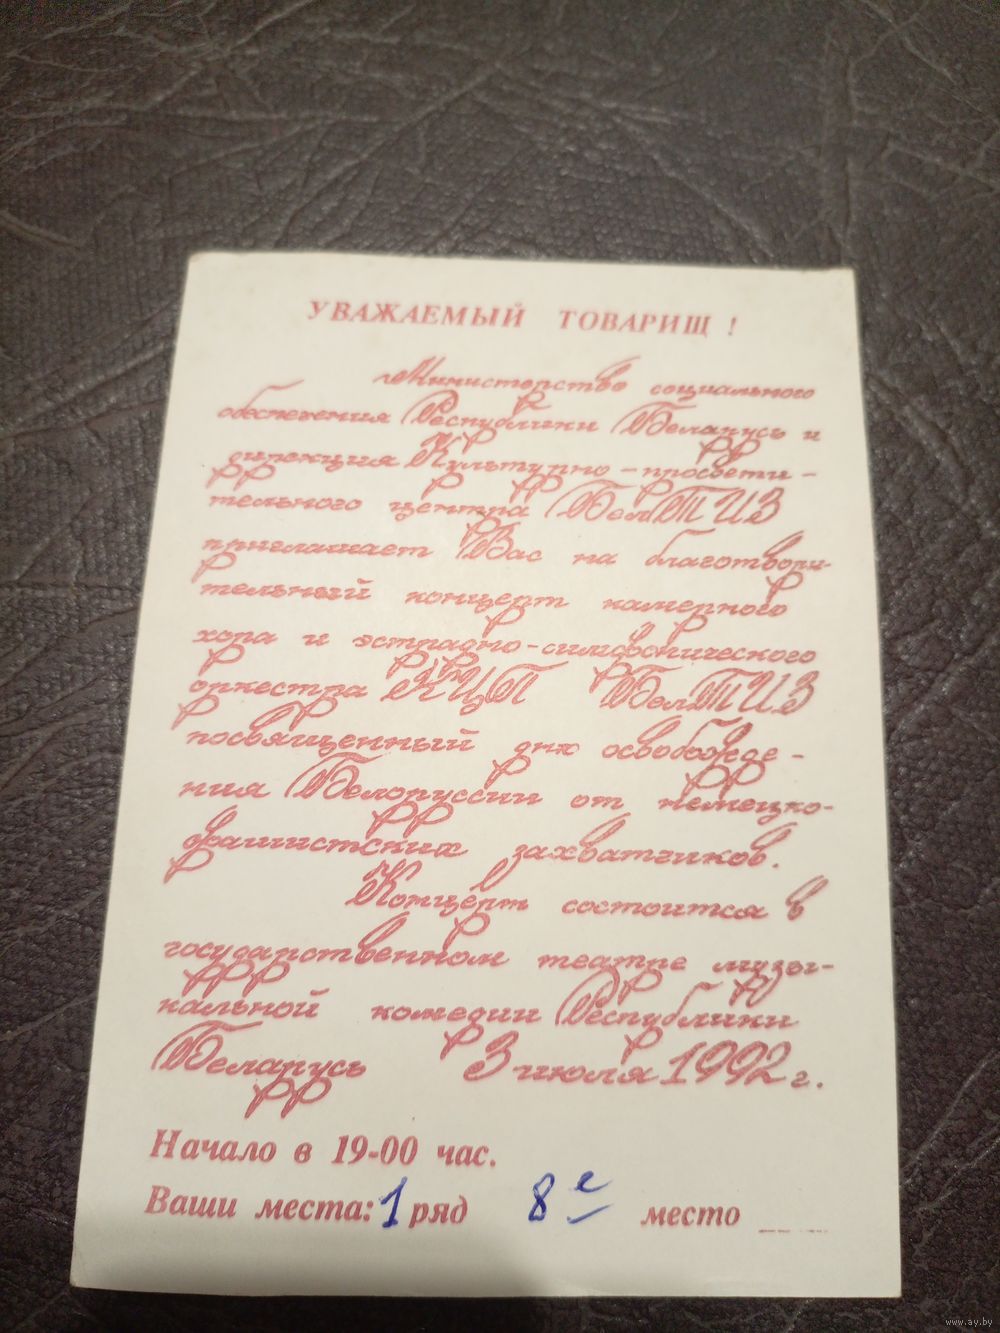 УВАЖАЕМЫЙ ТОВАРИЩ !
Министерство социального
обеспечения Республики Беларусь и
дирекция Культурно-просвети-
тельного центра БелТИЗ
приглашает Вас на благотвори-
тельный концерт камерного
хора и эстрадно-симфонического
оркестра КЦП БелТИЗ
посвященный дню освобожде-
ния Белоруссии от немецко-
фашистских захватчиков.
Концерт состоится в
государственном театре музы-
кальной комедии Республики
Беларусь 3 июля 1992 г.
Начало в 19-00 час.
Ваши места: 1 ряд 8е место
www.ay.by